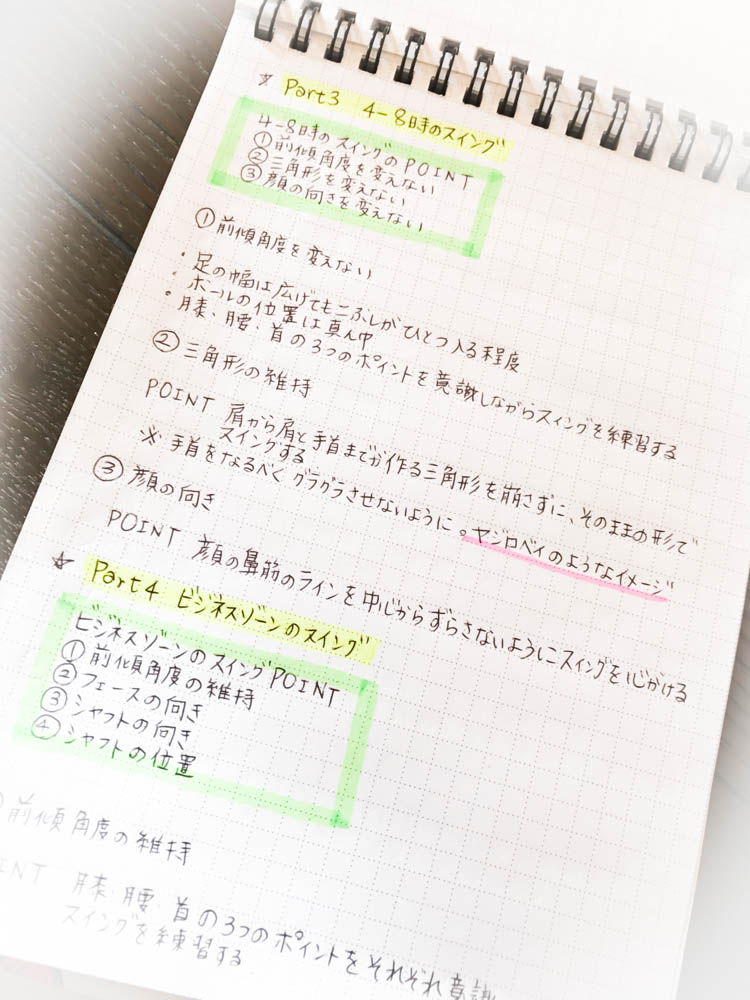 ☆ Part3 4-8時のスイング
4-8時のスイングのPOINT
① 前傾角度を変えない
② 三角形を変えない
③ 顔の向きを変えない
① 前傾角度を変えない
・足の幅は広げてもこぶしがひとつ入る程度
・ボールの位置は真ん中
・膝、腰、首の3つのポイントを意識しながらスイングを練習する
② 三角形の維持
POINT 肩から肩と手首までが作る三角形を崩さずに、そのままの形で
スイングする
※ 手首をなるべくグラグラさせないように。ヤジロベイのようなイメージ
③ 顔の向き
POINT 顔の鼻筋のラインを中心からずらさないようにスイングを心がける
☆ Part4 ビジネスゾーンのスイング
ビジネスゾーンのスイングPOINT
① 前傾角度の維持
② フェースの向き
③ シャフトの向き
④ シャフトの位置
前傾角度の維持
INT 膝、腰、首の3つのポイントをそれぞれ意識
スイングを練習する